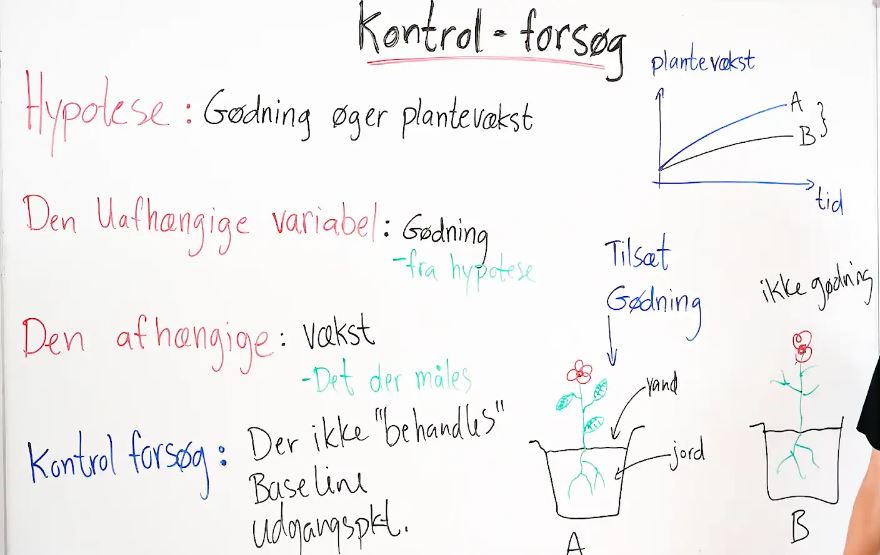 Kontrol-forsøg
Hypotese: Gødning øger plantevækst
Den Uafhængige variabel: Gødning
-fra hypotese
Den afhængige: vækst
-Det der måles
Kontrol forsøg: Der ikke "behandles"
Baseline
udgangspkt.
plantevækst
A
B
tid
Tilsæt
Gødning
ikke gødning
vand
jord
A
B